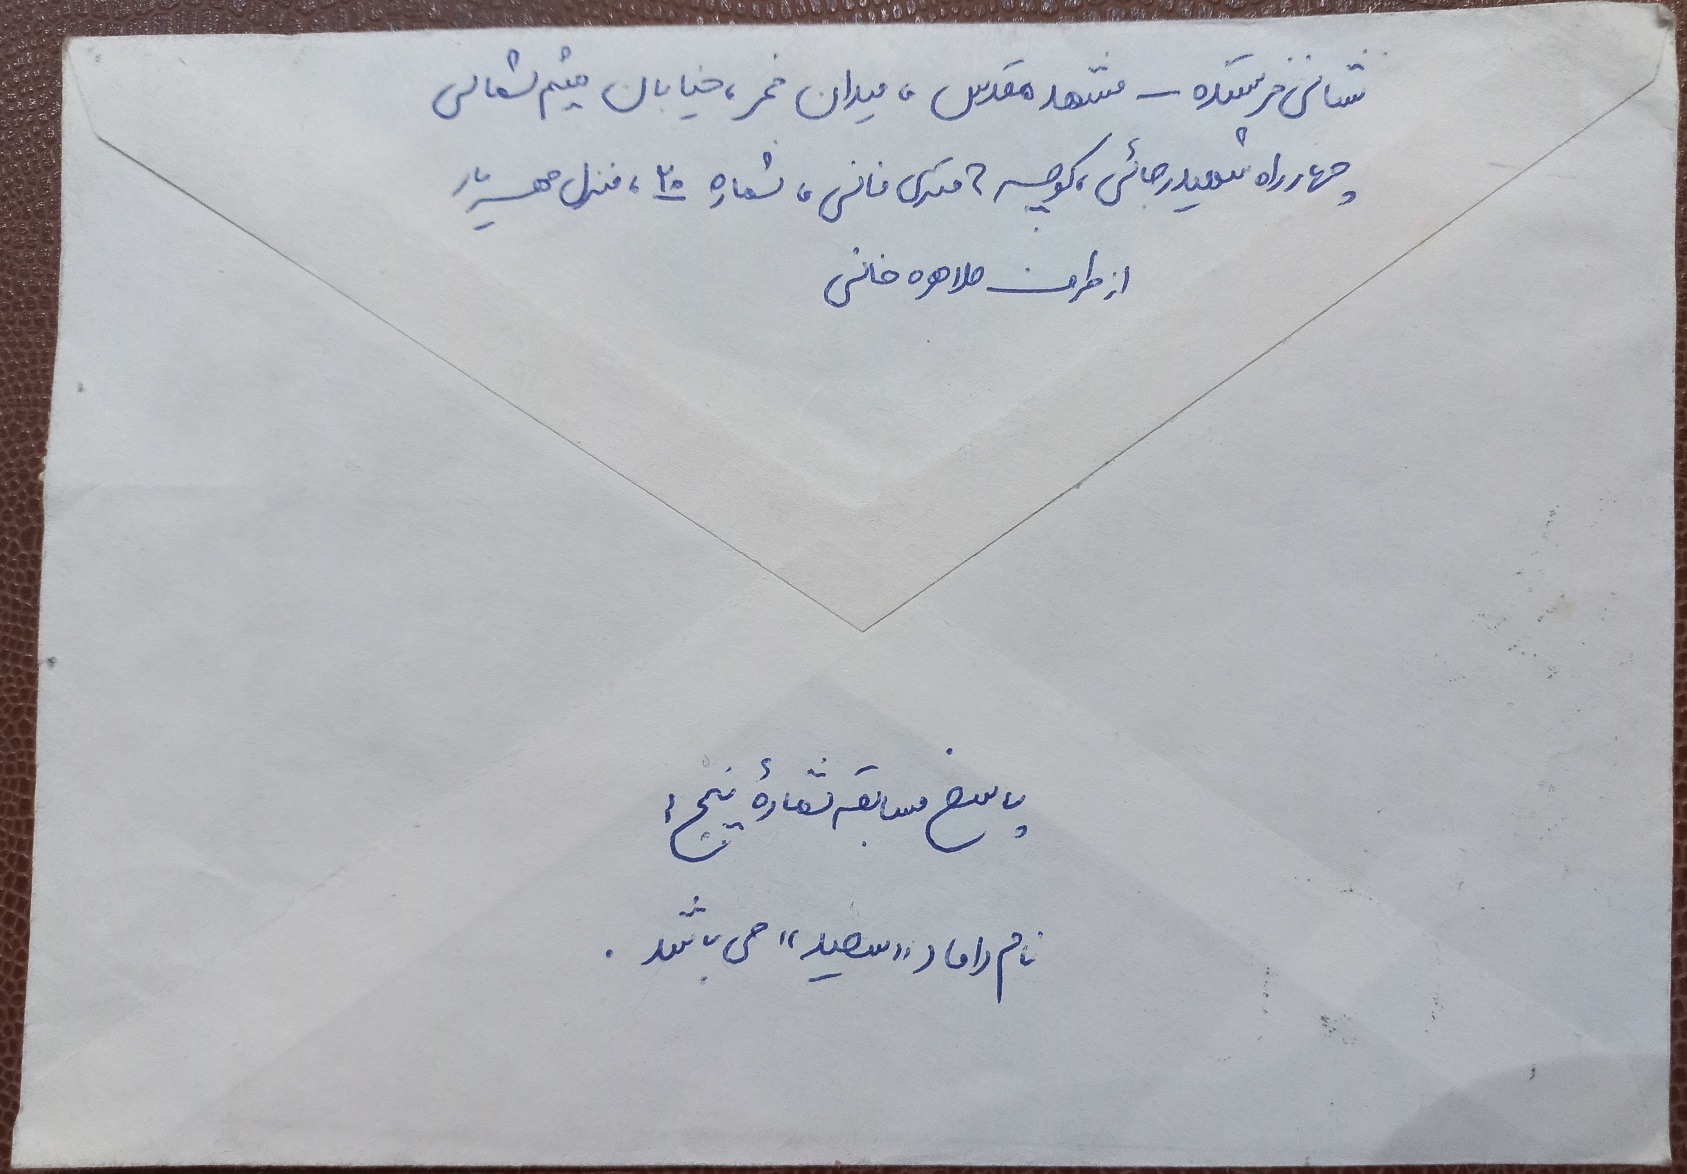 نشانی فرستنده - مشهد مقدس ، میدان خمر ، خیابان میثم شمالی
چهارراه شهید رجائی ، کوچه ۶ متری فانی ، شماره ۲۰ ، منزل مهریار
از طرف طاهره خانی
پاسخ مسابقه شمارهٔ پنج :
نام داماد «سعید» می باشد .